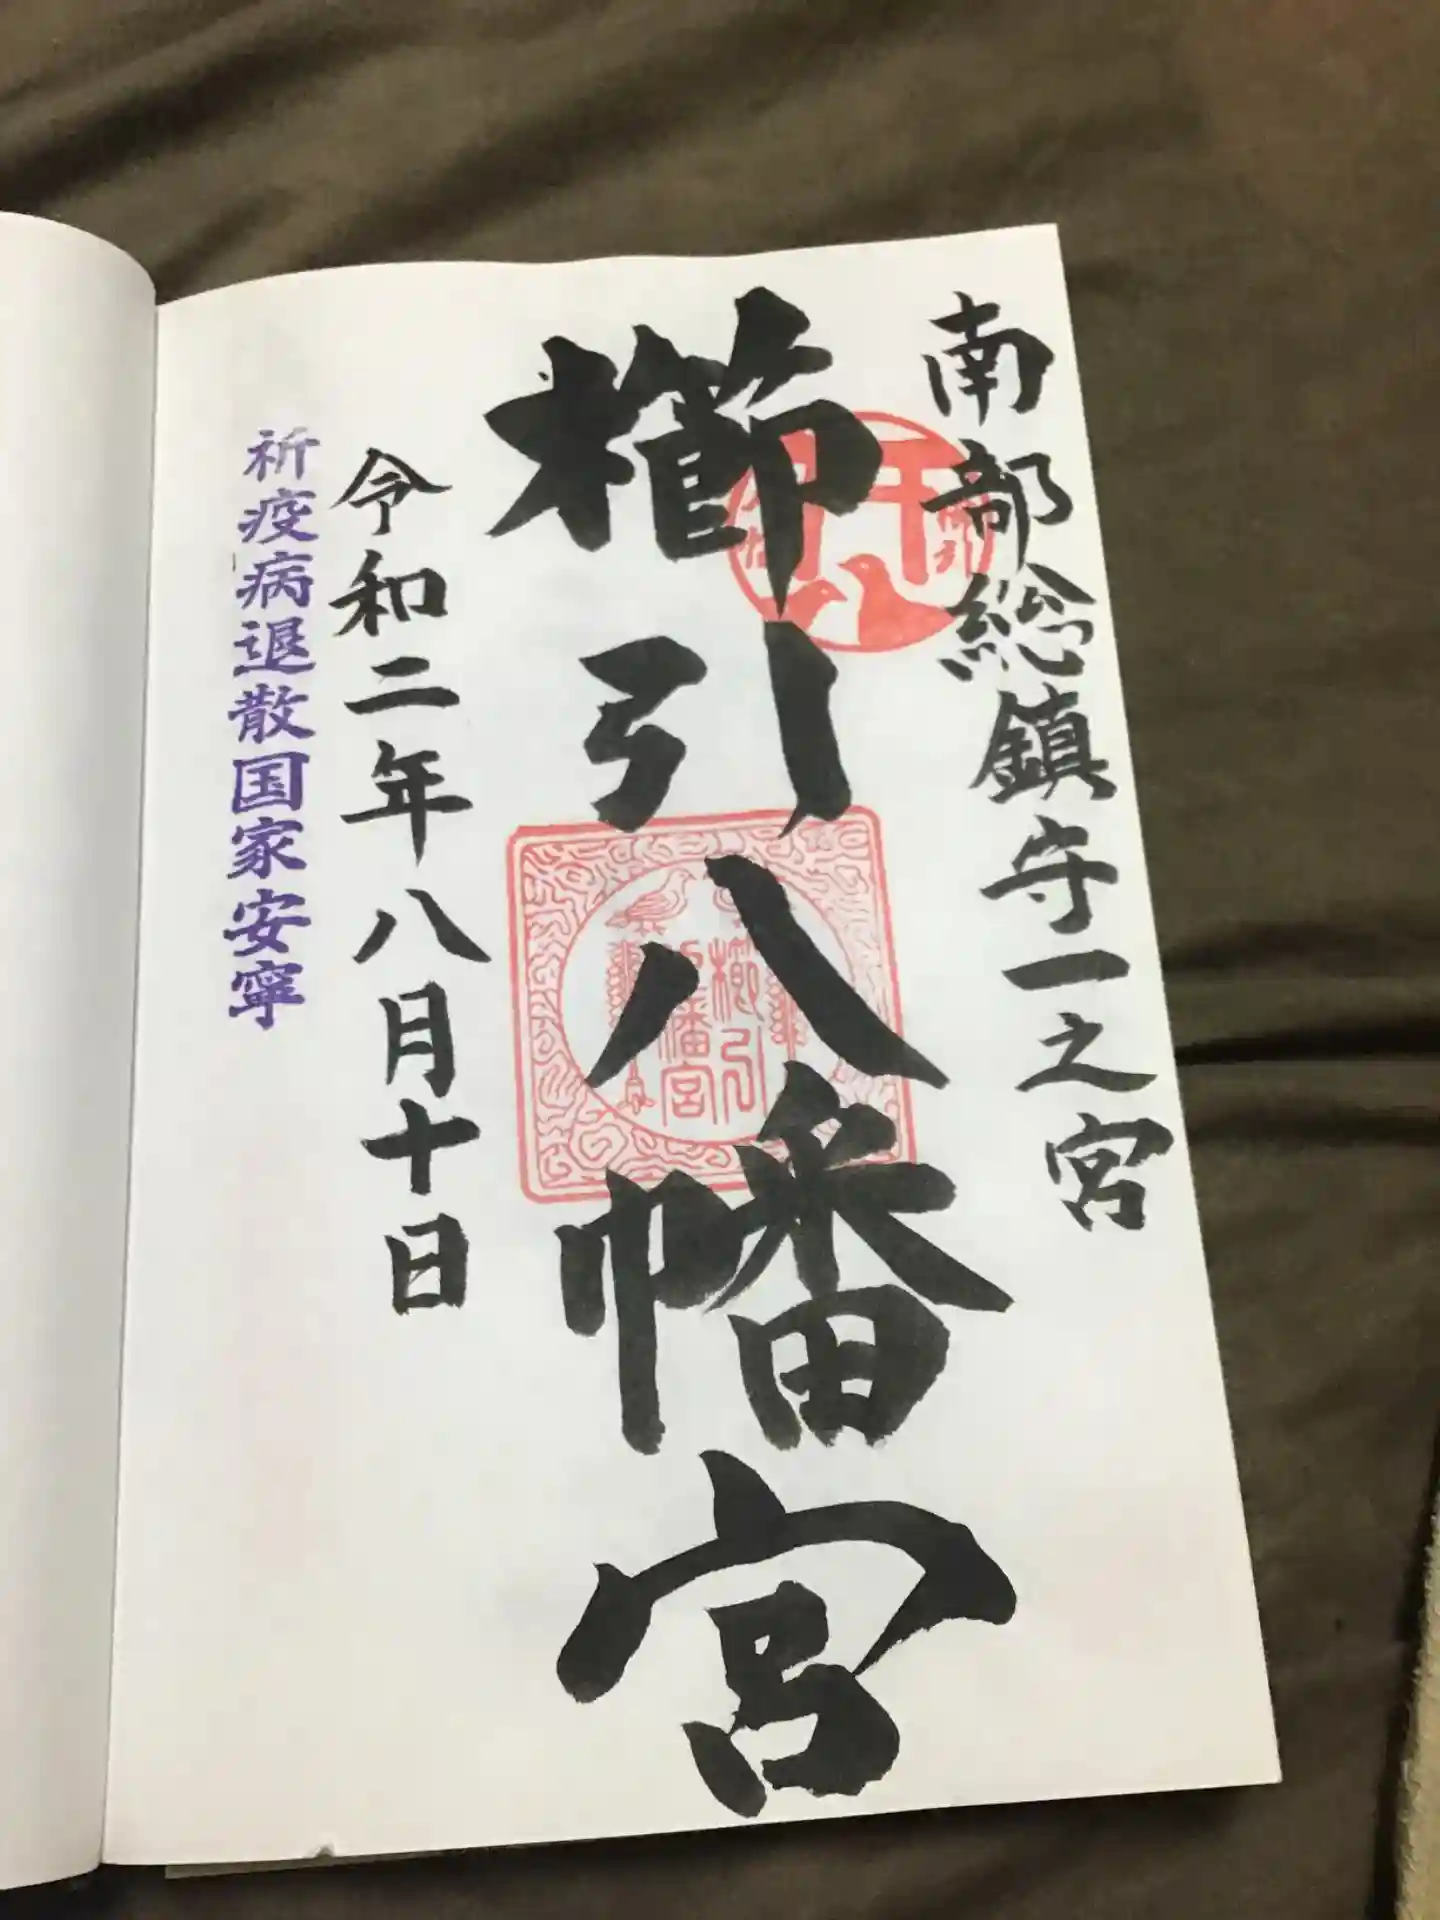 南部総鎮守一之宮
櫛引八幡宮
櫛引
八幡宮
令和二年八月十日
祈疫病退散国家安寧